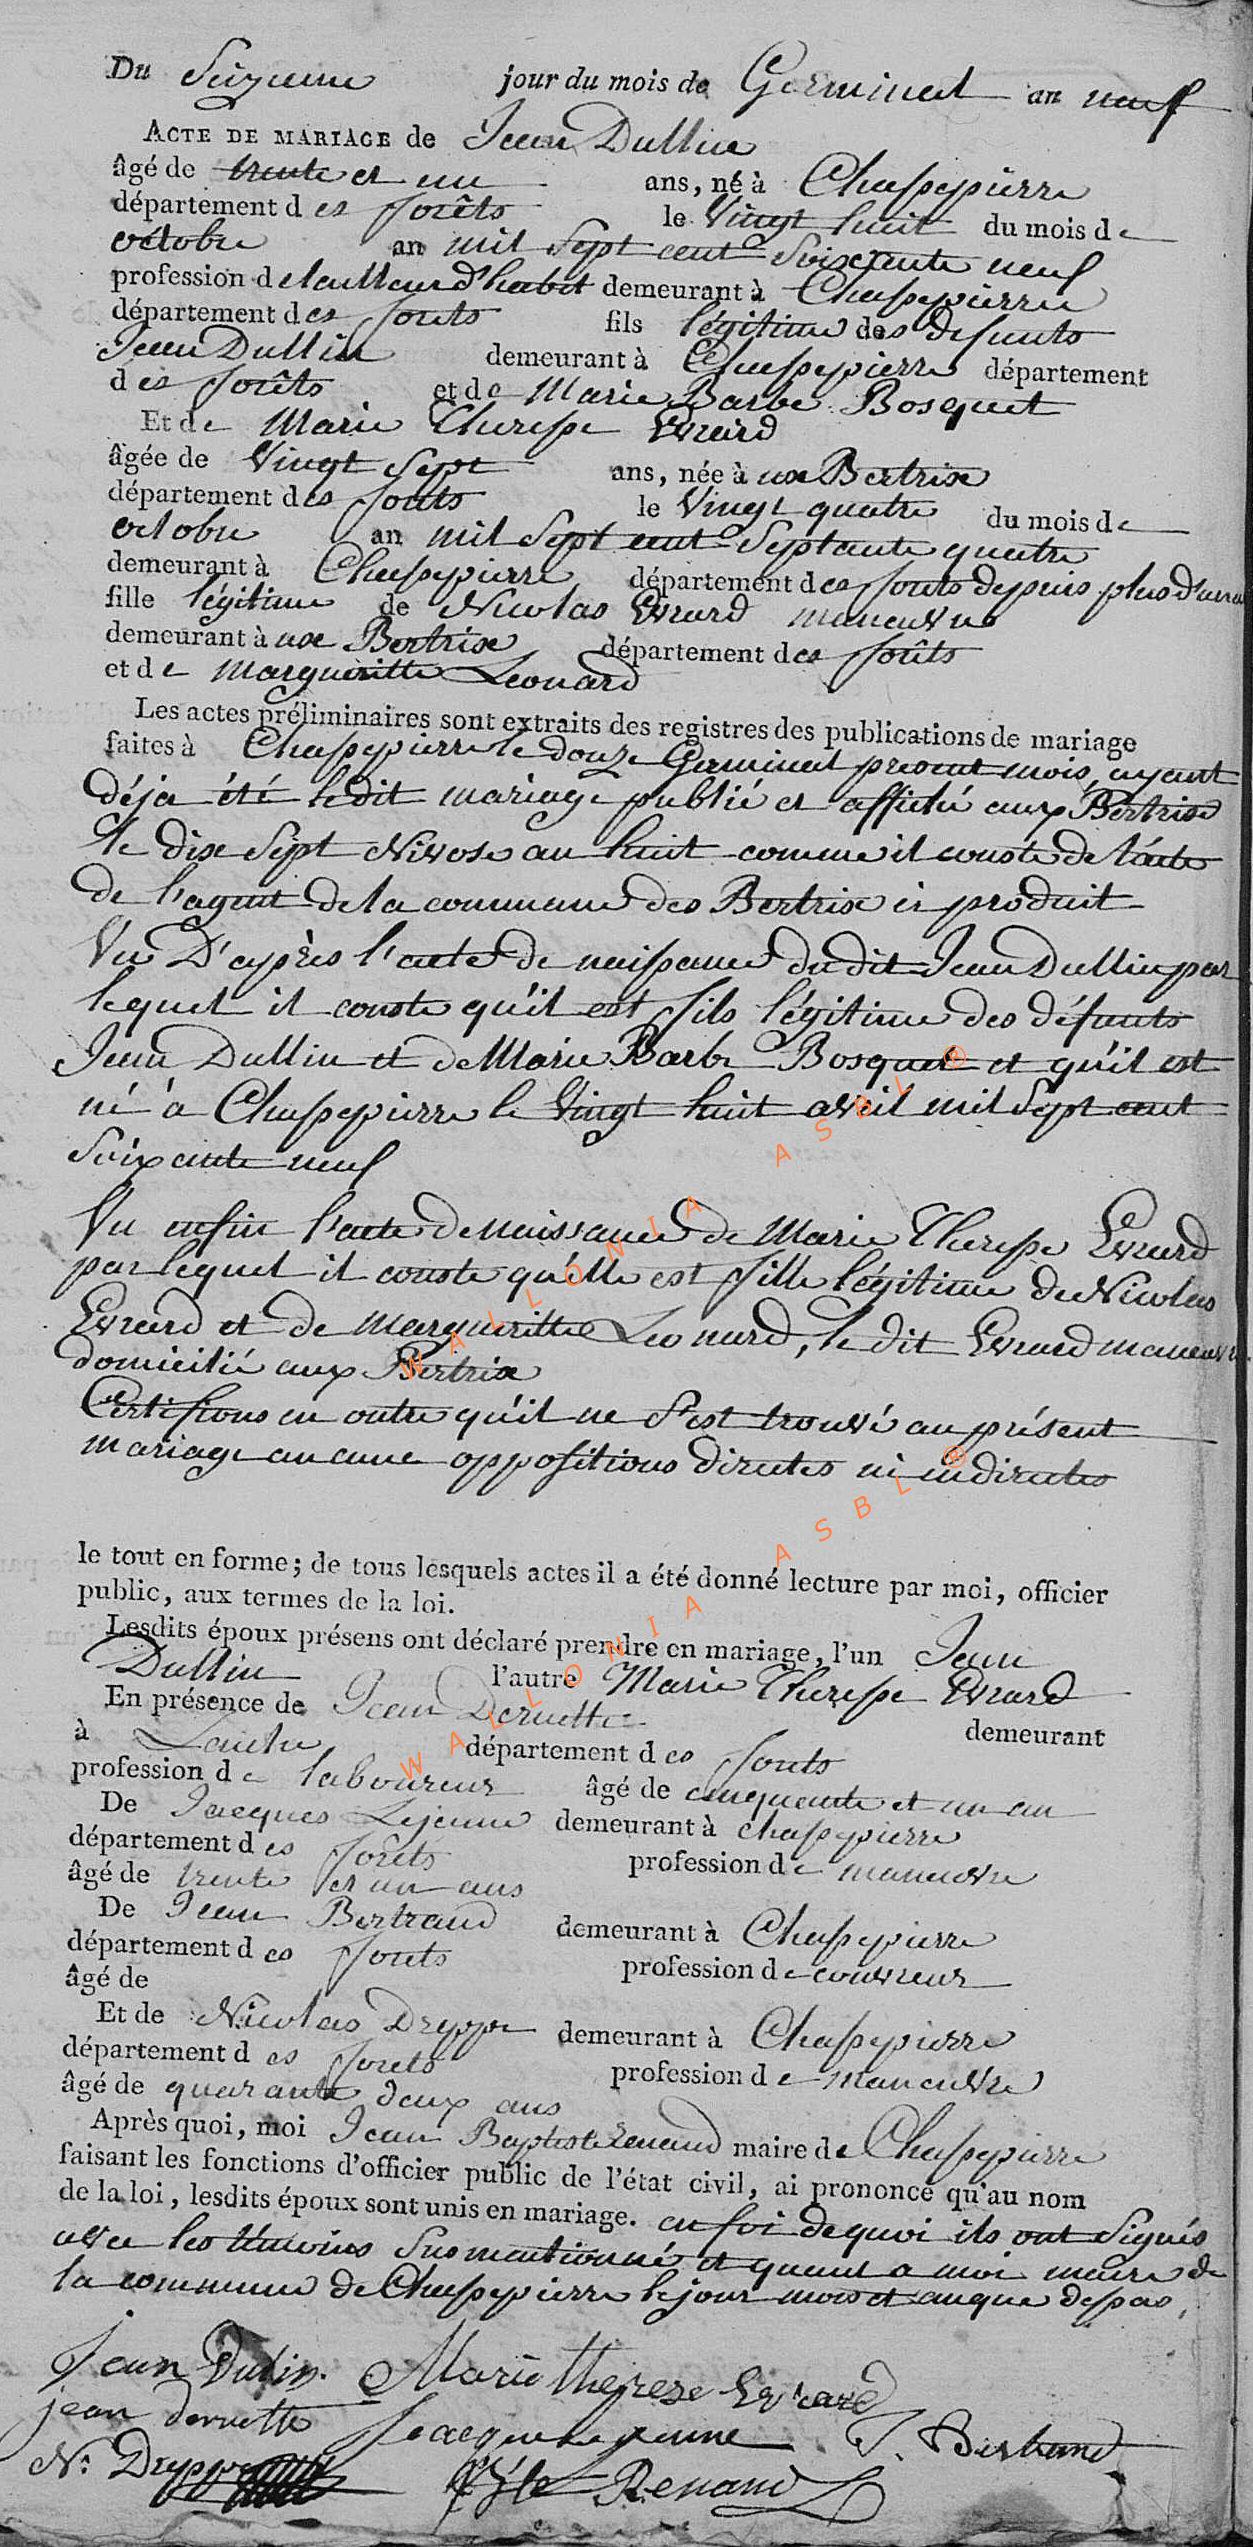 Du Seizieme jour du mois de Germinal an neuf
ACTE DE MARIAGE de Jean Dullin
âgé de trente et un ans, né à Chassepierre
département des forêts le Vingt huit du mois de
octobre an mil Sept cent Soixante neuf
profession de tailleur d'habit demeurant à Chassepierre
département des forets fils légitime des defunts
Jean Dullin demeurant à Chassepierre département
des forêts et de Marie Barbe Bosquet
Et de Marie Theresse Evrard
âgée de Vingt Sept ans, née à aux Bertrix
département des forets le Vingt quatre du mois de
octobre an mil Sept cent Septante quatre
demeurant à Chassepierre département des forets depuis plus d'un an
fille légitime de Nicolas Evrard maneuvre
demeurant à aux Bertrix département des forêts
et de Margueritte Leonard
Les actes préliminaires sont extraits des registres des publications de mariage
faites à Chassepierre le douze Germinal present mois, ayant
déja été le dit mariage publié et affiché aux Bertrix
le dix Sept Nivose an huit comme il conste de l'acte
de l'agent de la commune des Bertrix ci produit
Vu D'après l'acte de naissance du dit Jean Dullin par
lequel il conste qu'il est fils légitime des défunts
Jean Dullin et de Marie Barbe Bosquet et qu'il est
né à Chassepierre le Vingt huit avril mil Sept cent
Soixante neuf
Vu enfin l'acte de Naissance de Marie Theresse Evrard
par lequel il conste qu'elle est fille légitime de Nicolas
Evrard et de Margueritte Leonard, le dit Evrard maneuvre
domicilié aux Bertrix
Certifions en outre qu'il ne s'est trouvé au présent
mariage aucune oppositions directes ni indirectes
le tout en forme; de tous lesquels actes il a été donné lecture par moi, officier
public, aux termes de la loi.
Lesdits époux présens ont déclaré prendre en mariage, l'un Jean
Dullin l'autre Marie Theresse Evrard
En présence de Jean Deruette demeurant
à Laiche département des forets
profession de laboureur âgé de cinquante et un an
De Jacques Lejeune demeurant à chassepierre
département des forêts profession de maneuvre
âgé de trente et un ans
De Jean Bertrand demeurant à Chassepierre
département des forets profession de couvreur
âgé de
Et de Nicolas Dreppe demeurant à Chassepierre
département des forets profession de maneuvre
âgé de quarante deux ans
Après quoi, moi Jean Baptiste Renaud maire de Chassepierre
faisant les fonctions d'officier public de l'état civil, ai prononcé qu'au nom
de la loi, lesdits époux sont unis en mariage. en foi de quoi ils ont Signés
avec les temoins Susmentionné et quant a moi maire de
la commune de Chassepierre le jour mois et an que dessus,
Jean Dulin. Marie therese Evrard
jean deruette Jacque Lejeunne J. Bertrand
N: Dreppe Bte Renaud
WALLONIA ASBL ®
WALLONIA ASBL ®